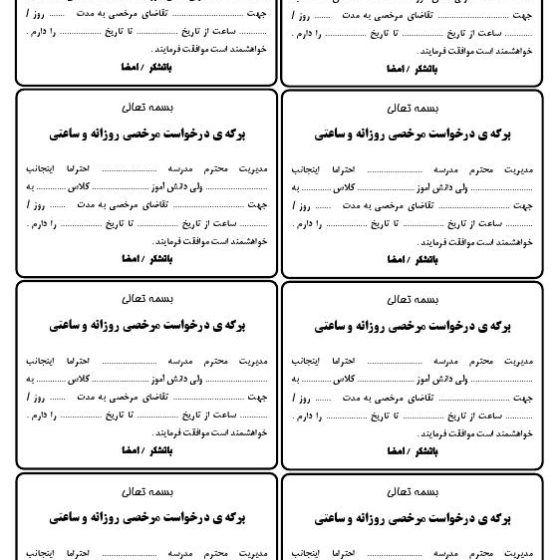 جهت ........................ تقاضای مرخصی به مدت ....... روز /
............ ساعت از تاریخ .................. تا تاریخ .................. را دارم .
خواهشمند است موافقت فرمایند.
باتشکر / امضا
جهت ........................ تقاضای مرخصی به مدت ....... روز /
............ ساعت از تاریخ .................. تا تاریخ .................. را دارم .
خواهشمند است موافقت فرمایند.
باتشکر / امضا
بسمه تعالی
برگه ی درخواست مرخصی روزانه و ساعتی
مدیریت محترم مدرسه ........................ احتراما اینجانب
........................... ولی دانش آموز ......................... کلاس ............. به
جهت ........................ تقاضای مرخصی به مدت ....... روز /
............ ساعت از تاریخ .................. تا تاریخ .................. را دارم .
خواهشمند است موافقت فرمایند.
باتشکر / امضا
بسمه تعالی
برگه ی درخواست مرخصی روزانه و ساعتی
مدیریت محترم مدرسه ........................ احتراما اینجانب
........................... ولی دانش آموز ......................... کلاس ............. به
جهت ........................ تقاضای مرخصی به مدت ....... روز /
............ ساعت از تاریخ .................. تا تاریخ .................. را دارم .
خواهشمند است موافقت فرمایند.
باتشکر / امضا
بسمه تعالی
برگه ی درخواست مرخصی روزانه و ساعتی
مدیریت محترم مدرسه ........................ احتراما اینجانب
........................... ولی دانش آموز ......................... کلاس ............. به
جهت ........................ تقاضای مرخصی به مدت ....... روز /
............ ساعت از تاریخ .................. تا تاریخ .................. را دارم .
خواهشمند است موافقت فرمایند.
باتشکر / امضا
بسمه تعالی
برگه ی درخواست مرخصی روزانه و ساعتی
مدیریت محترم مدرسه ........................ احتراما اینجانب
........................... ولی دانش آموز ......................... کلاس ............. به
جهت ........................ تقاضای مرخصی به مدت ....... روز /
............ ساعت از تاریخ .................. تا تاریخ .................. را دارم .
خواهشمند است موافقت فرمایند.
باتشکر / امضا
بسمه تعالی
برگه ی درخواست مرخصی روزانه و ساعتی
مدیریت محترم مدرسه ........................ احتراما اینجانب
بسمه تعالی
برگه ی درخواست مرخصی روزانه و ساعتی
مدیریت محترم مدرسه ........................ احتراما اینجانب